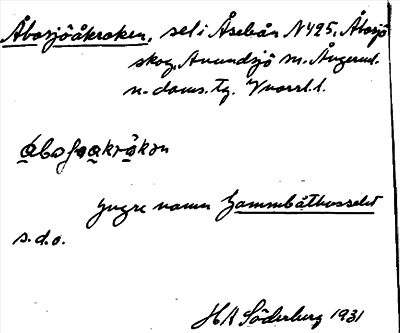 Åbosjöåkroken, sel i Åseleån N425, Åbosjö
skog, Anundsjö sn. Ångerml.
n. doms. tg. Y norrl. l.
åbosjoakrökɷn
Yngre namn Gammbåthusselet
s.d.o.
HR Söderberg 1931